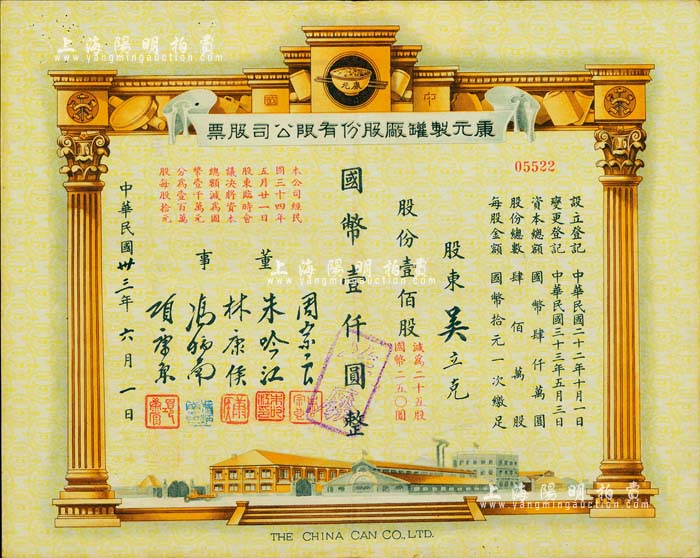 康元
康元製罐廠股份有限公司股票
05522
設立登記 中華民國二十二年十月一日
變更登記 中華民國三十三年五月三日
資本總額 國幣肆仟萬圓
股份總數 肆佰萬股
每股金額 國幣拾元一次繳足
股東 吴立克
股份壹佰股
減為二十五股
國幣二五〇圓
國幣壹仟圓整
本公司經民
國三十四年
五月廿一日
股東臨時會
議决將資本
總額減為國
幣壹千萬元
分為壹百萬
股每股拾元
董事
朱吟江
林康侯
項康原
中華民國卅三年六月一日
THE CHINA CAN CO., LTD.
上海陽明拍賣
www.yangmingauction.com
上海陽明拍賣
www.yangmingauction.com
上海陽明拍賣
www.yangmingauction.com